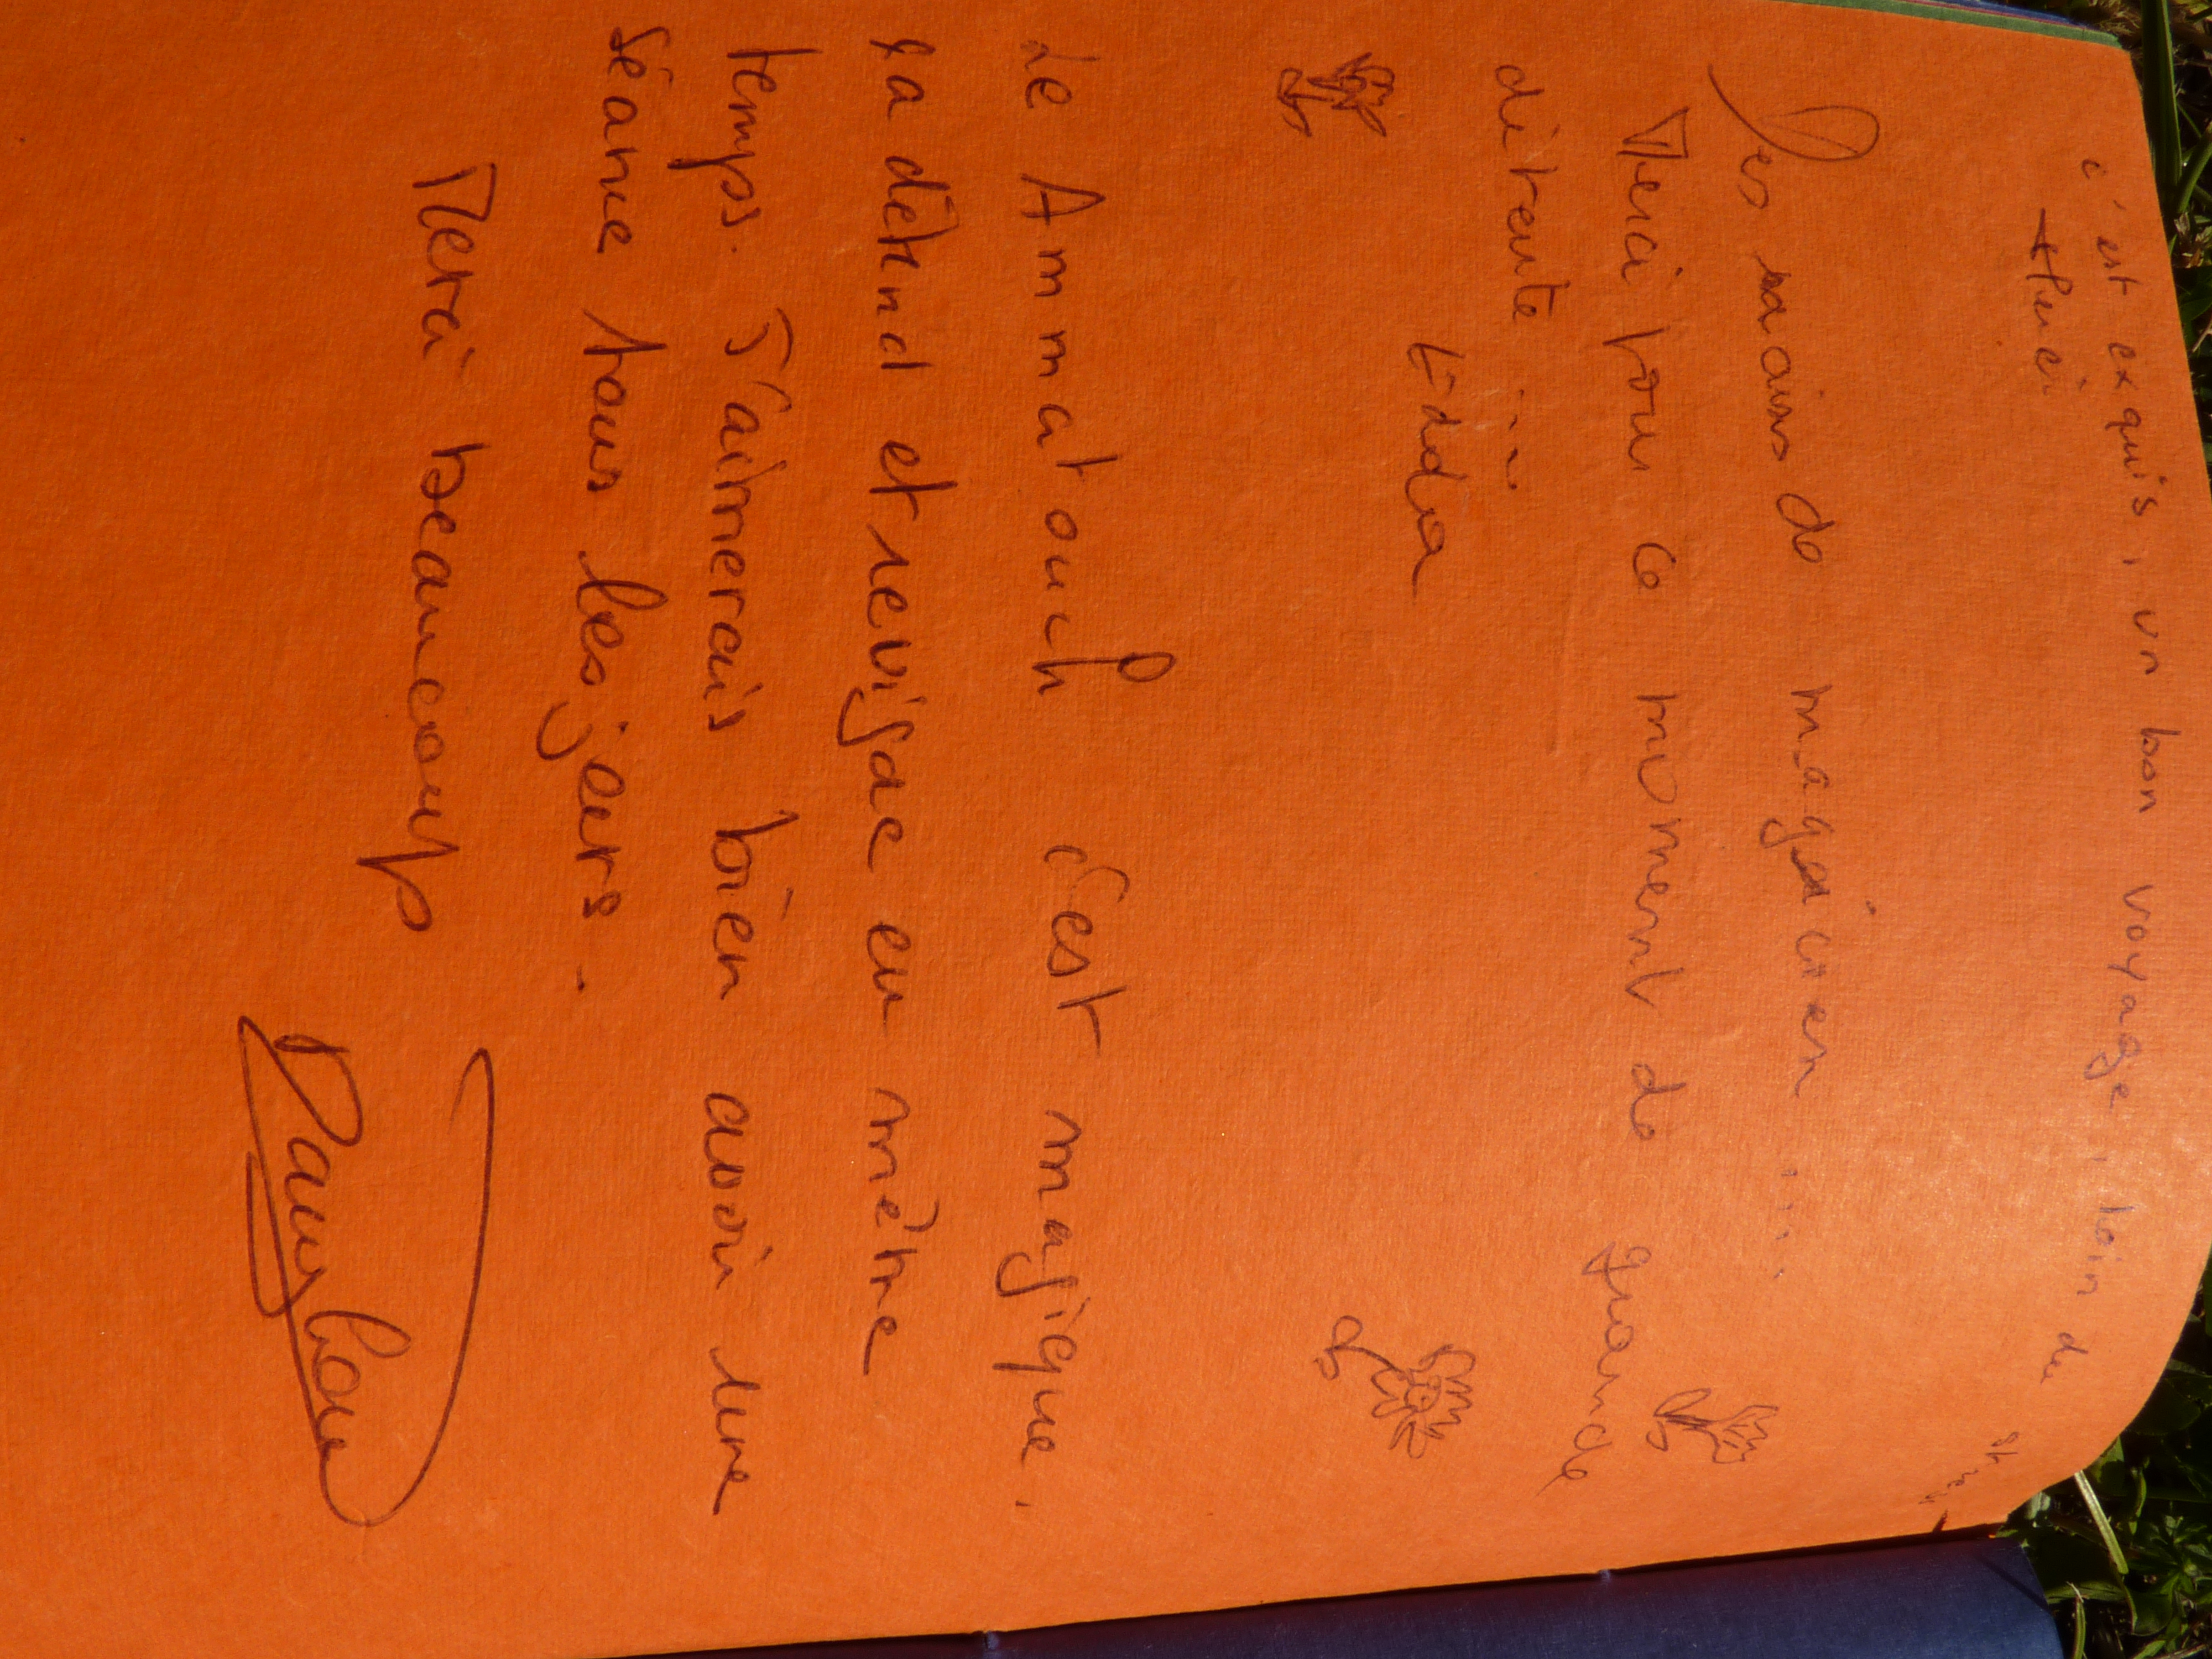 c'est exquis, un bon voyage, loin du
Merci
Des mains de magicien ....
Merci pour ce moment de grande
détente ....
Edda
Le Ammatouch c'est magique.
ça détend et revigore en même
temps. J'aimerais bien avoir une
séance tous les jours.
Merci beaucoup